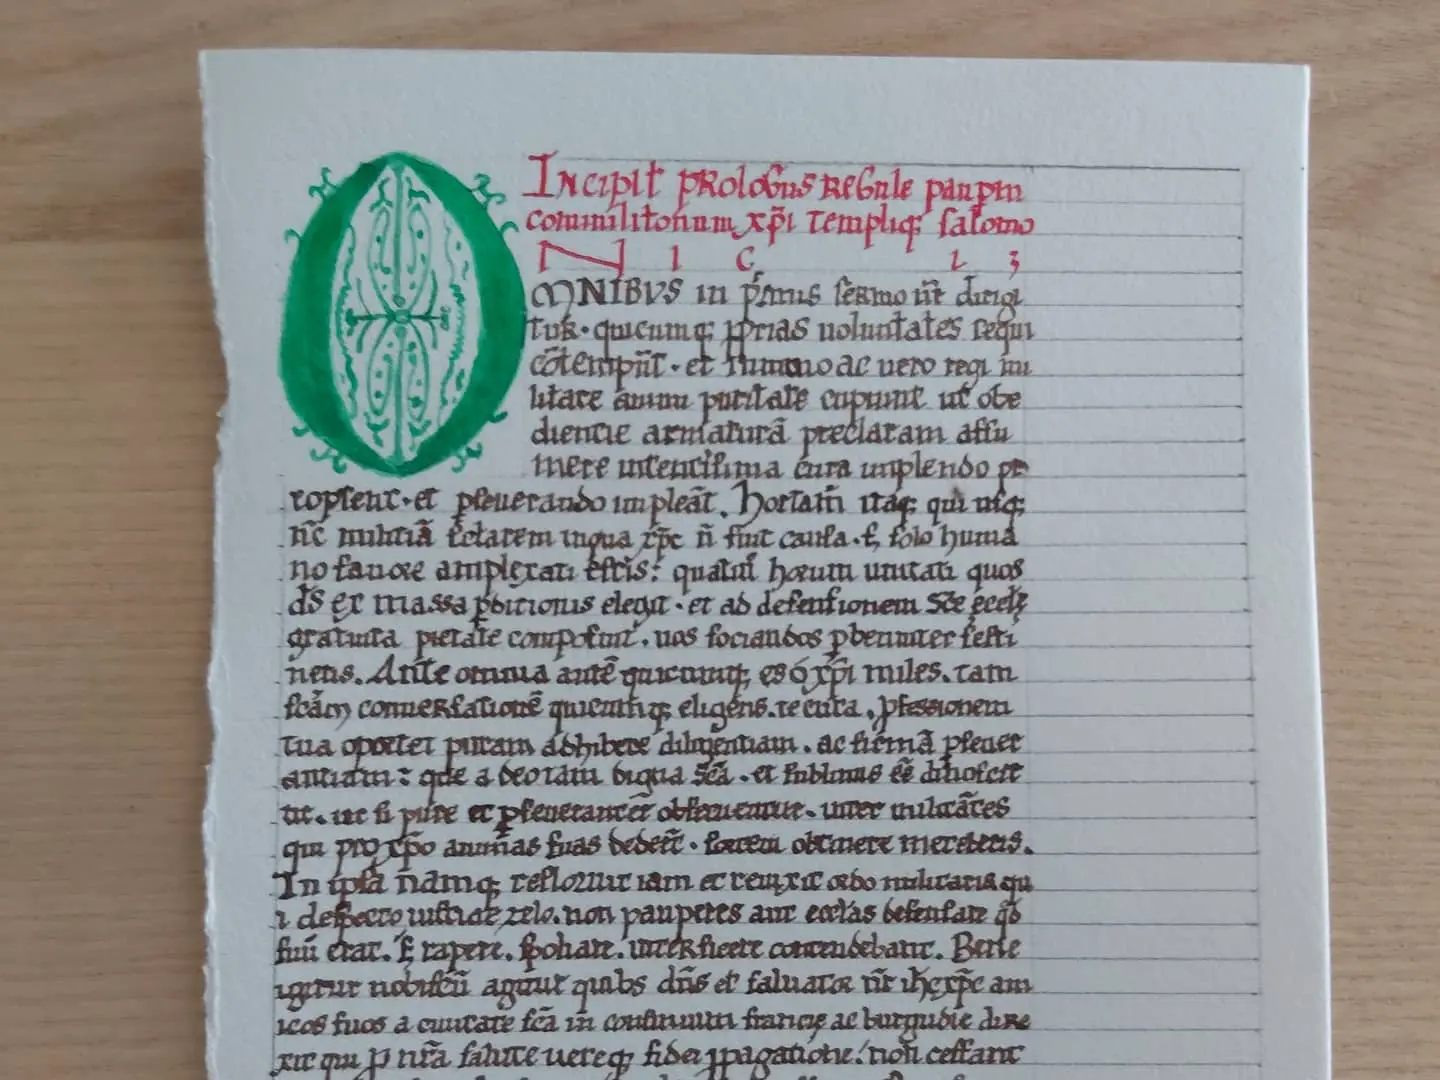 Incipit prologus Regule paupm
commilitonum xp̃i Templiq; salomo
N I C 2 3
OMNIBVS in p̃mis sermo nr̃t dirigi
tur · quicumq; pprias uoluntates sequi
cõtempnũt · et summo ac uero regi mi
litare animi puritate cupiunt ut obe
dientie armaturã preclaram assu
mere intentissima cura implendo pr
roptent · et pseuerando impleãt. Hortam̃ itaq; qui usq;
nc̃ militiã sc̃larem inqua xp̃c ñ fuit causa · s; solo huma
no fauore amplexati estis: quatin̾ horum unitati quos
ds̃ ex massa pditionis elegit · et ad defensionem Sc̃e ecclę
gratuita pietate composuit. uos sociandos phenniter festi
netis. Ante omnia autẽ quicumq; es ó xp̃i miles. tam
scãm conuersationẽ quicumq; eligens. te circa. pfessionem
tua oportet puram adhibere diligentiam. ac firmã pseuer
antiam: que a deo tam digna sc̃a · et sublimis eẽ dinoscit
tit. ut si pure et pseueranter̃ obseruentur. inter militãtes
qui pro xp̃o animas suas dedert̃ · sortem obtinere mereberis.
In ipsa namq; refloruit iam et reuixit ordo militaris qu
i despecto iustitiae zelo. non pauperes aut ecclas̃ defensare qđ
suũ erat. S; rapere. spoliare. interficere contendebant. Bene
igitur nobiscũ agitur quibs dñs et saluator nr̃ ih̃c xp̃c am
icos suos a ciuitate sc̃a in confinium francię ac burgudie dire
xit qui p nr̃a salute uereq; fidei ppagatione. non cessant